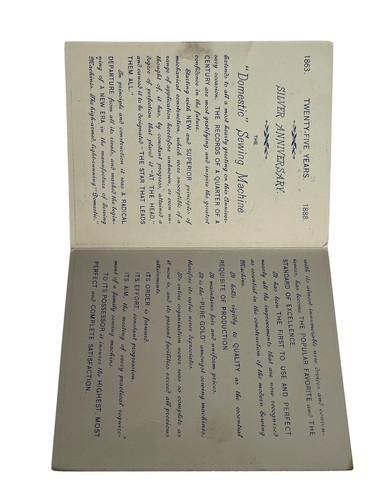 1863. TWENTY-FIVE YEARS. 1888.
SILVER ANNIVERSARY.
THE
"Domestic" Sewing Machine
listends to all a most hearty greeting on this Anniver-
sary occasion. THE RECORDS OF A QUARTER OF A
CENTURY are most gratifying, and inspire the greatest
confidence in the future.
Starting with NEW and SUPERIOR principles of
mechanical construction, which were susceptible of a
range of application heretofore unknown, or even un-
thought of, it has, by constant progress, attained a
degree of perfection that placed it "AT THE HEAD,"
and caused it to be designated "THE STAR THAT LEADS
THEM ALL."
In principle and construction it was A RADICAL
DEPARTURE from all its rivals, and marked the begin-
ning of A NEW ERA in the manufacture of Sewing
Machines. The high-armed, light-running "Domestic,"
with its almost innumerable new devices and conven-
iences, has become THE POPULAR FAVORITE and THE
STANDARD OF EXCELLENCE.
It has been THE FIRST TO USE AND PERFECT
nearly all the improvements that are now recognized
as essential in the construction of the modern Sewing
Machine.
It holds rigidly to QUALITY as the essential
REQUISITE OF PRODUCTION.
It maintains fair and uniform prices.
It is the "PURE GOLD" amongst sewing machines;
therefore its value never depreciates.
Its entire organization never was so complete as
it now is, and its present facilities exceed all previous
attainments.
ITS ORDER is forward.
ITS EFFORT, constant progression.
ITS AIM, the meeting of every practical require-
ment of a family sewing machine.
TO ITS POSSESSOR it insures the HIGHEST, MOST
PERFECT and COMPLETE SATISFACTION.